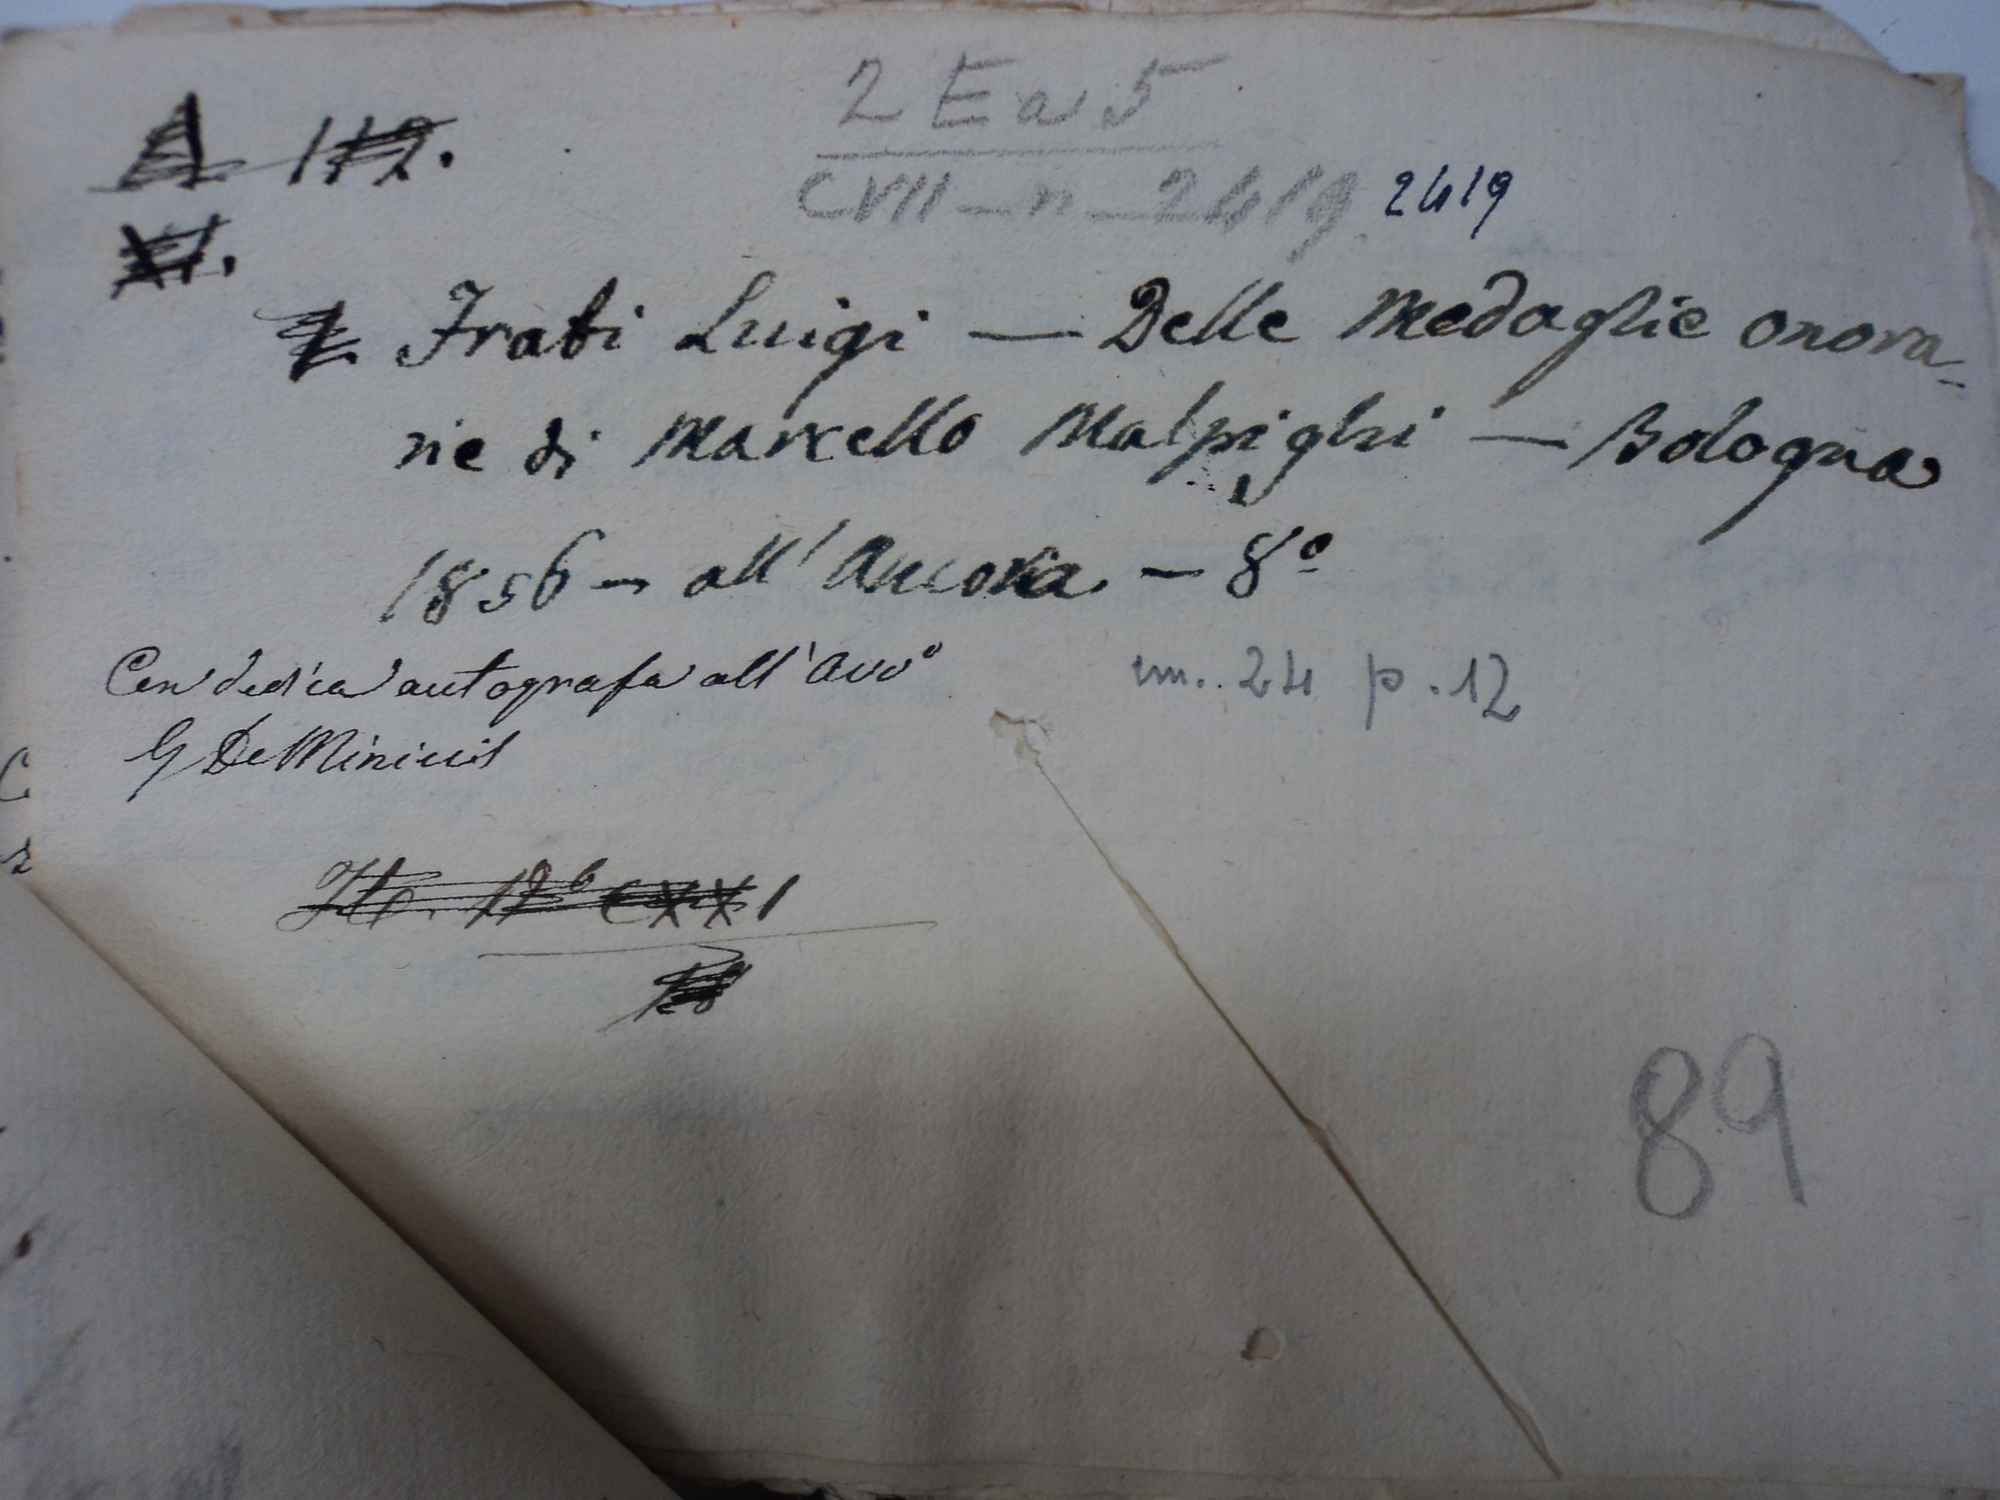 2 E a 5
A 112.
CVII - n - 2419 2419
XI.
Frati Luigi — Delle Medaglie onora-
rie di Marcello Malpighi — Bologna
1856 — all'Ancora. — 8º
Con dedica autografa all'Avvº
G De Minicis
m. 24 p. 12
CXX1
89